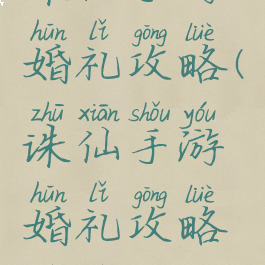 hūn lǐ gōng lüè
婚礼攻略(
zhū xiān shǒu yóu
诛仙手游
hūn lǐ gōng lüè
婚礼攻略